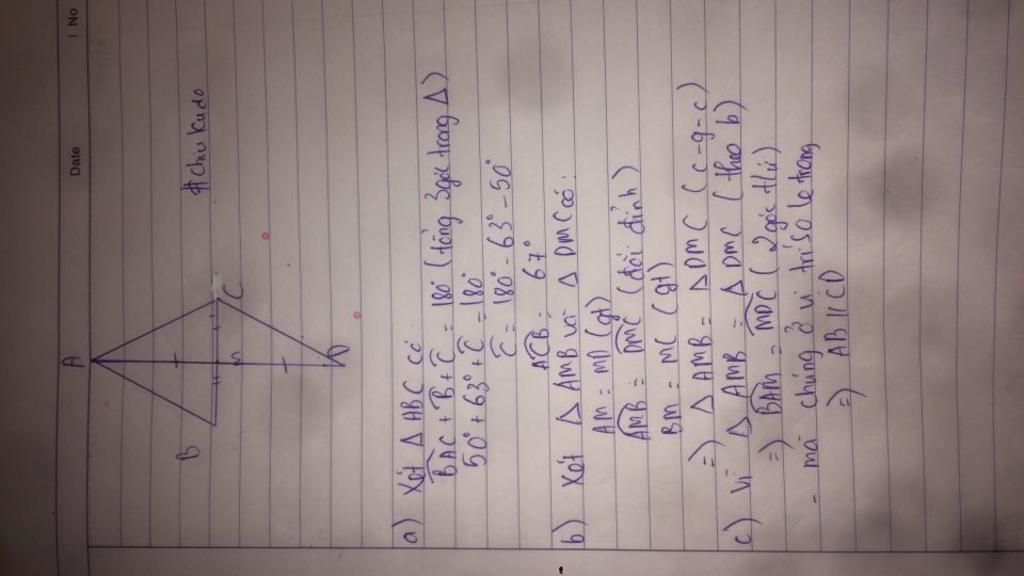 Date
No
A
B
C
m
D
#chu kudo
a) Xét Δ ABC có
BAC + B + C = 180° (tổng 3 góc trong Δ)
50° + 63° + C = 180°
C = 180° - 63° - 50°
ACB = 67°
b) Xét Δ AMB và Δ DMC có:
AM = MD (gt)
AMB = DMC (đối đỉnh)
BM = MC (gt)
=) Δ AMB = Δ DMC (c-g-c)
c) Vì Δ AMB = Δ DMC (theo b)
=) BAM = MDC (2 góc t/ứ)
- mà chúng ở vị trí so le trong
=) AB // CD